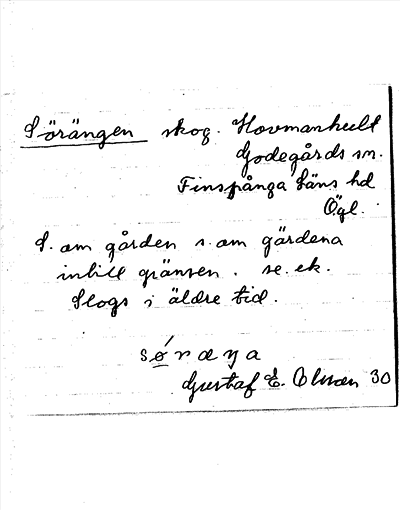 Sörängen skog. Hovmanhult
Godegårds sn.
Finspånga läns hd
Ögl.
S. om gården s. om gärdena
intill gränsen. se. ek.
Slogs i äldre tid.
sǿræŋa
Gustaf E. Olsson 30